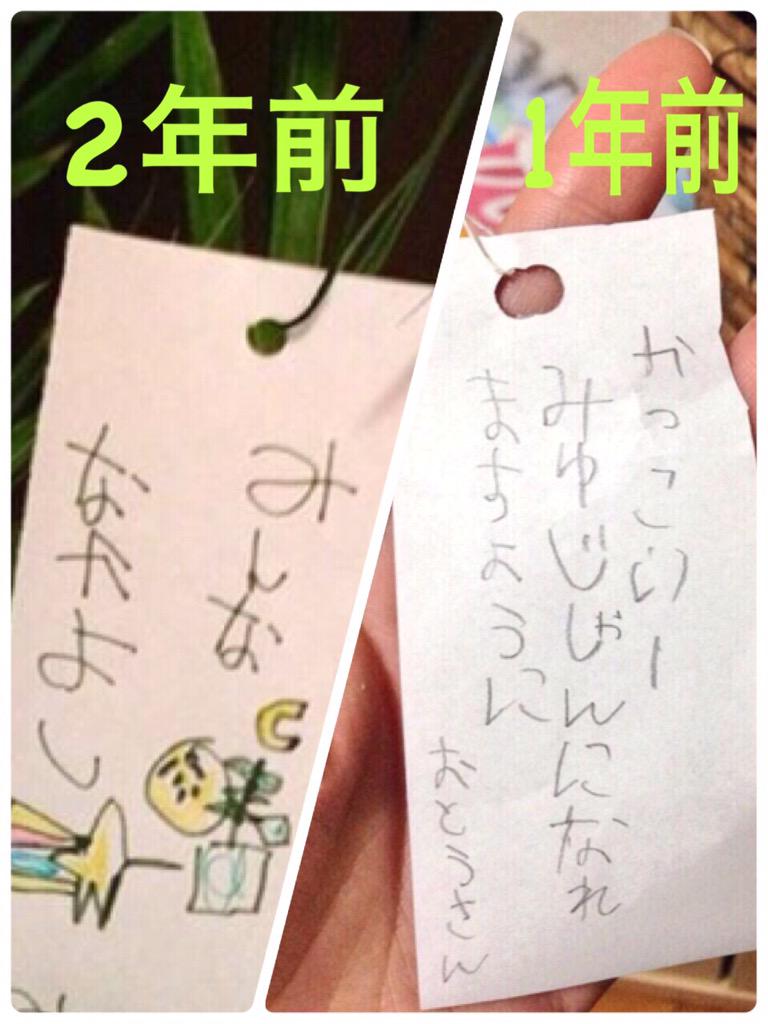 2年前
おとな
なかよし
1年前
かっこいー
みゅじしゃんになれ
ますように
おとうさん